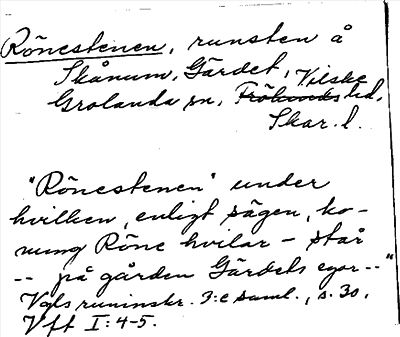 Rönestenen, runsten å
Skånum, Gärdet, Vilske
Grolanda sn, Frökinds hd,
Skar. l.
"Rönestenen" under
hvilken, enligt sägen, ko-
nung Röne hvilar – står
-- på gården Gärdets egor --"
Vgls runinskr. 3:e saml., s. 30,
Vft I: 4-5.